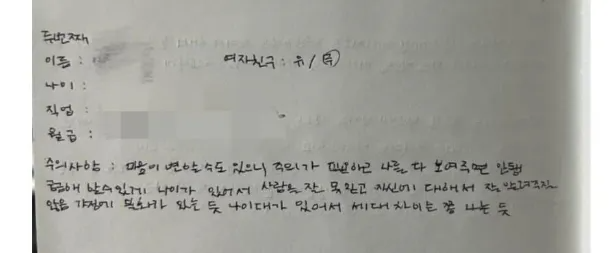 두번째
이름 :
여자친구 : 유 / 무
나이 :
직업 :
월급 :
주의사항 : 마음이 변할수도 있으니 주의가 필요하고 나를 다 보여주면 안됨
급해 보일수있게 나이가 있어서 사람을 잘 못믿고 자신에 대해서 잘
않음 가정에 불화가 있는 듯 나이대가 있어서 세대 차이는 쫌 나는 듯